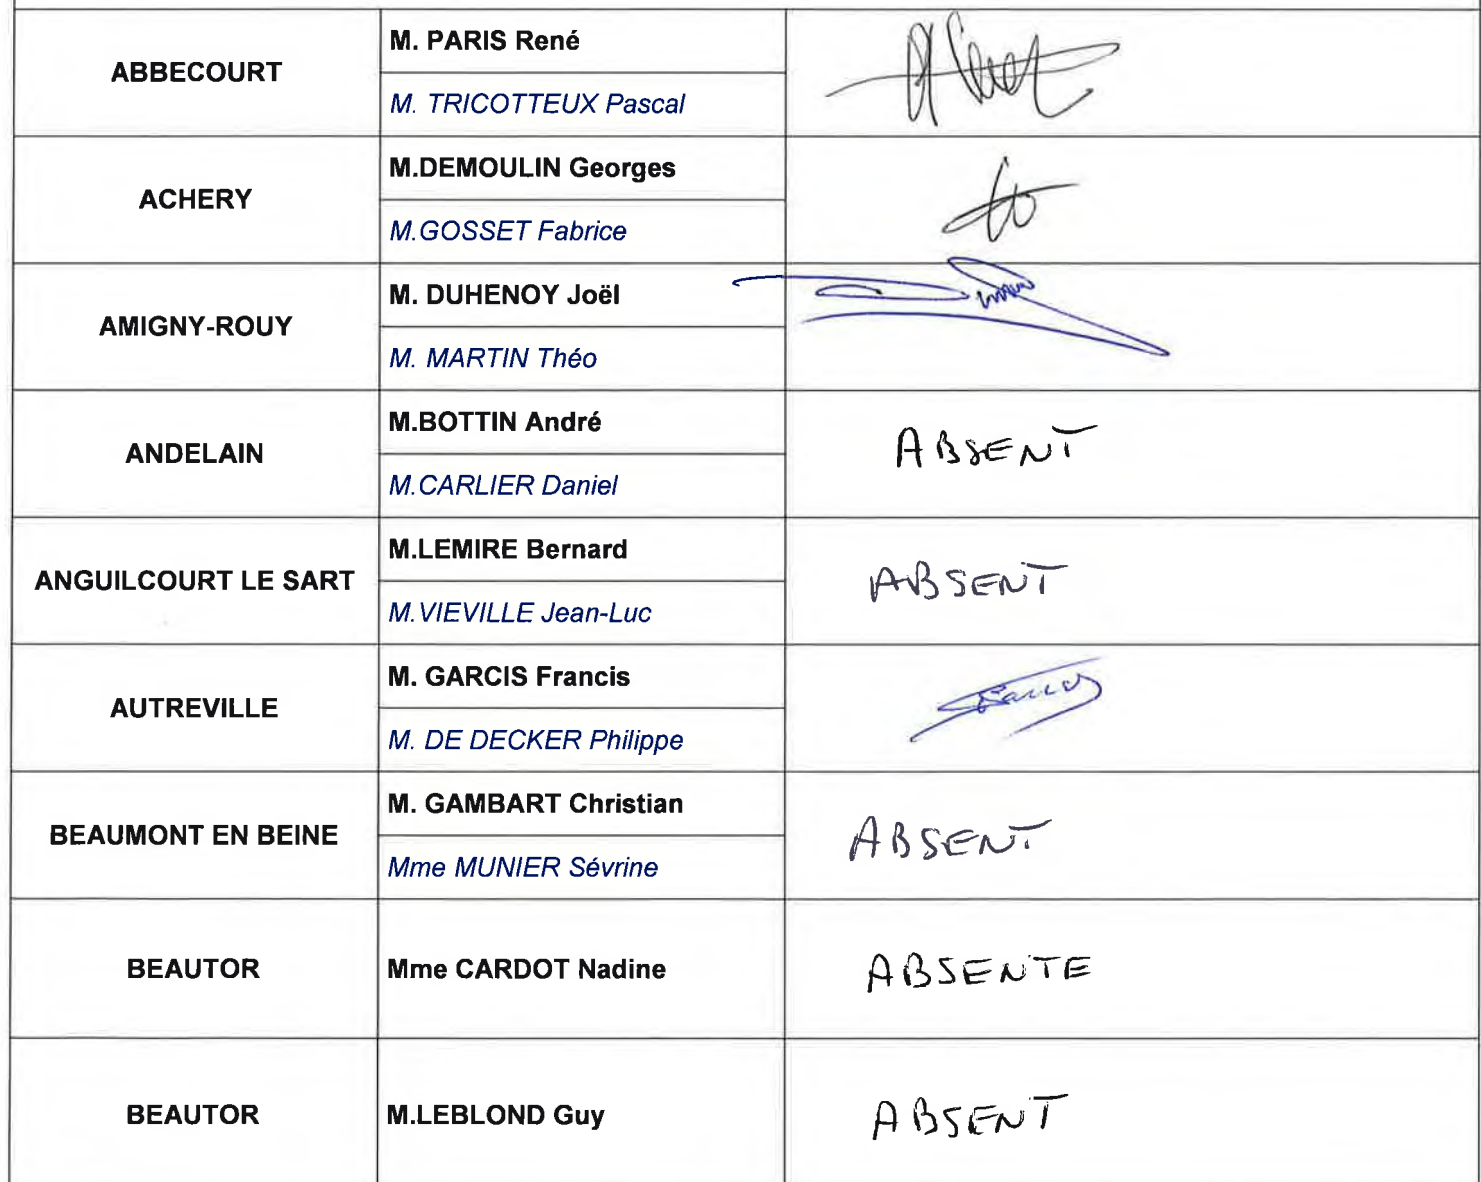 ABBECOURT
M. PARIS René
M. TRICOTTEUX Pascal
ACHERY
M.DEMOULIN Georges
M.GOSSET Fabrice
AMIGNY-ROUY
M. DUHENOY Joël
M. MARTIN Théo
ANDELAIN
M.BOTTIN André
M.CARLIER Daniel
ABSENT
ANGUILCOURT LE SART
M.LEMIRE Bernard
M.VIEVILLE Jean-Luc
ABSENT
AUTREVILLE
M. GARCIS Francis
M. DE DECKER Philippe
BEAUMONT EN BEINE
M. GAMBART Christian
Mme MUNIER Sévrine
ABSENT
BEAUTOR
Mme CARDOT Nadine
ABSENTE
BEAUTOR
M.LEBLOND Guy
ABSENT